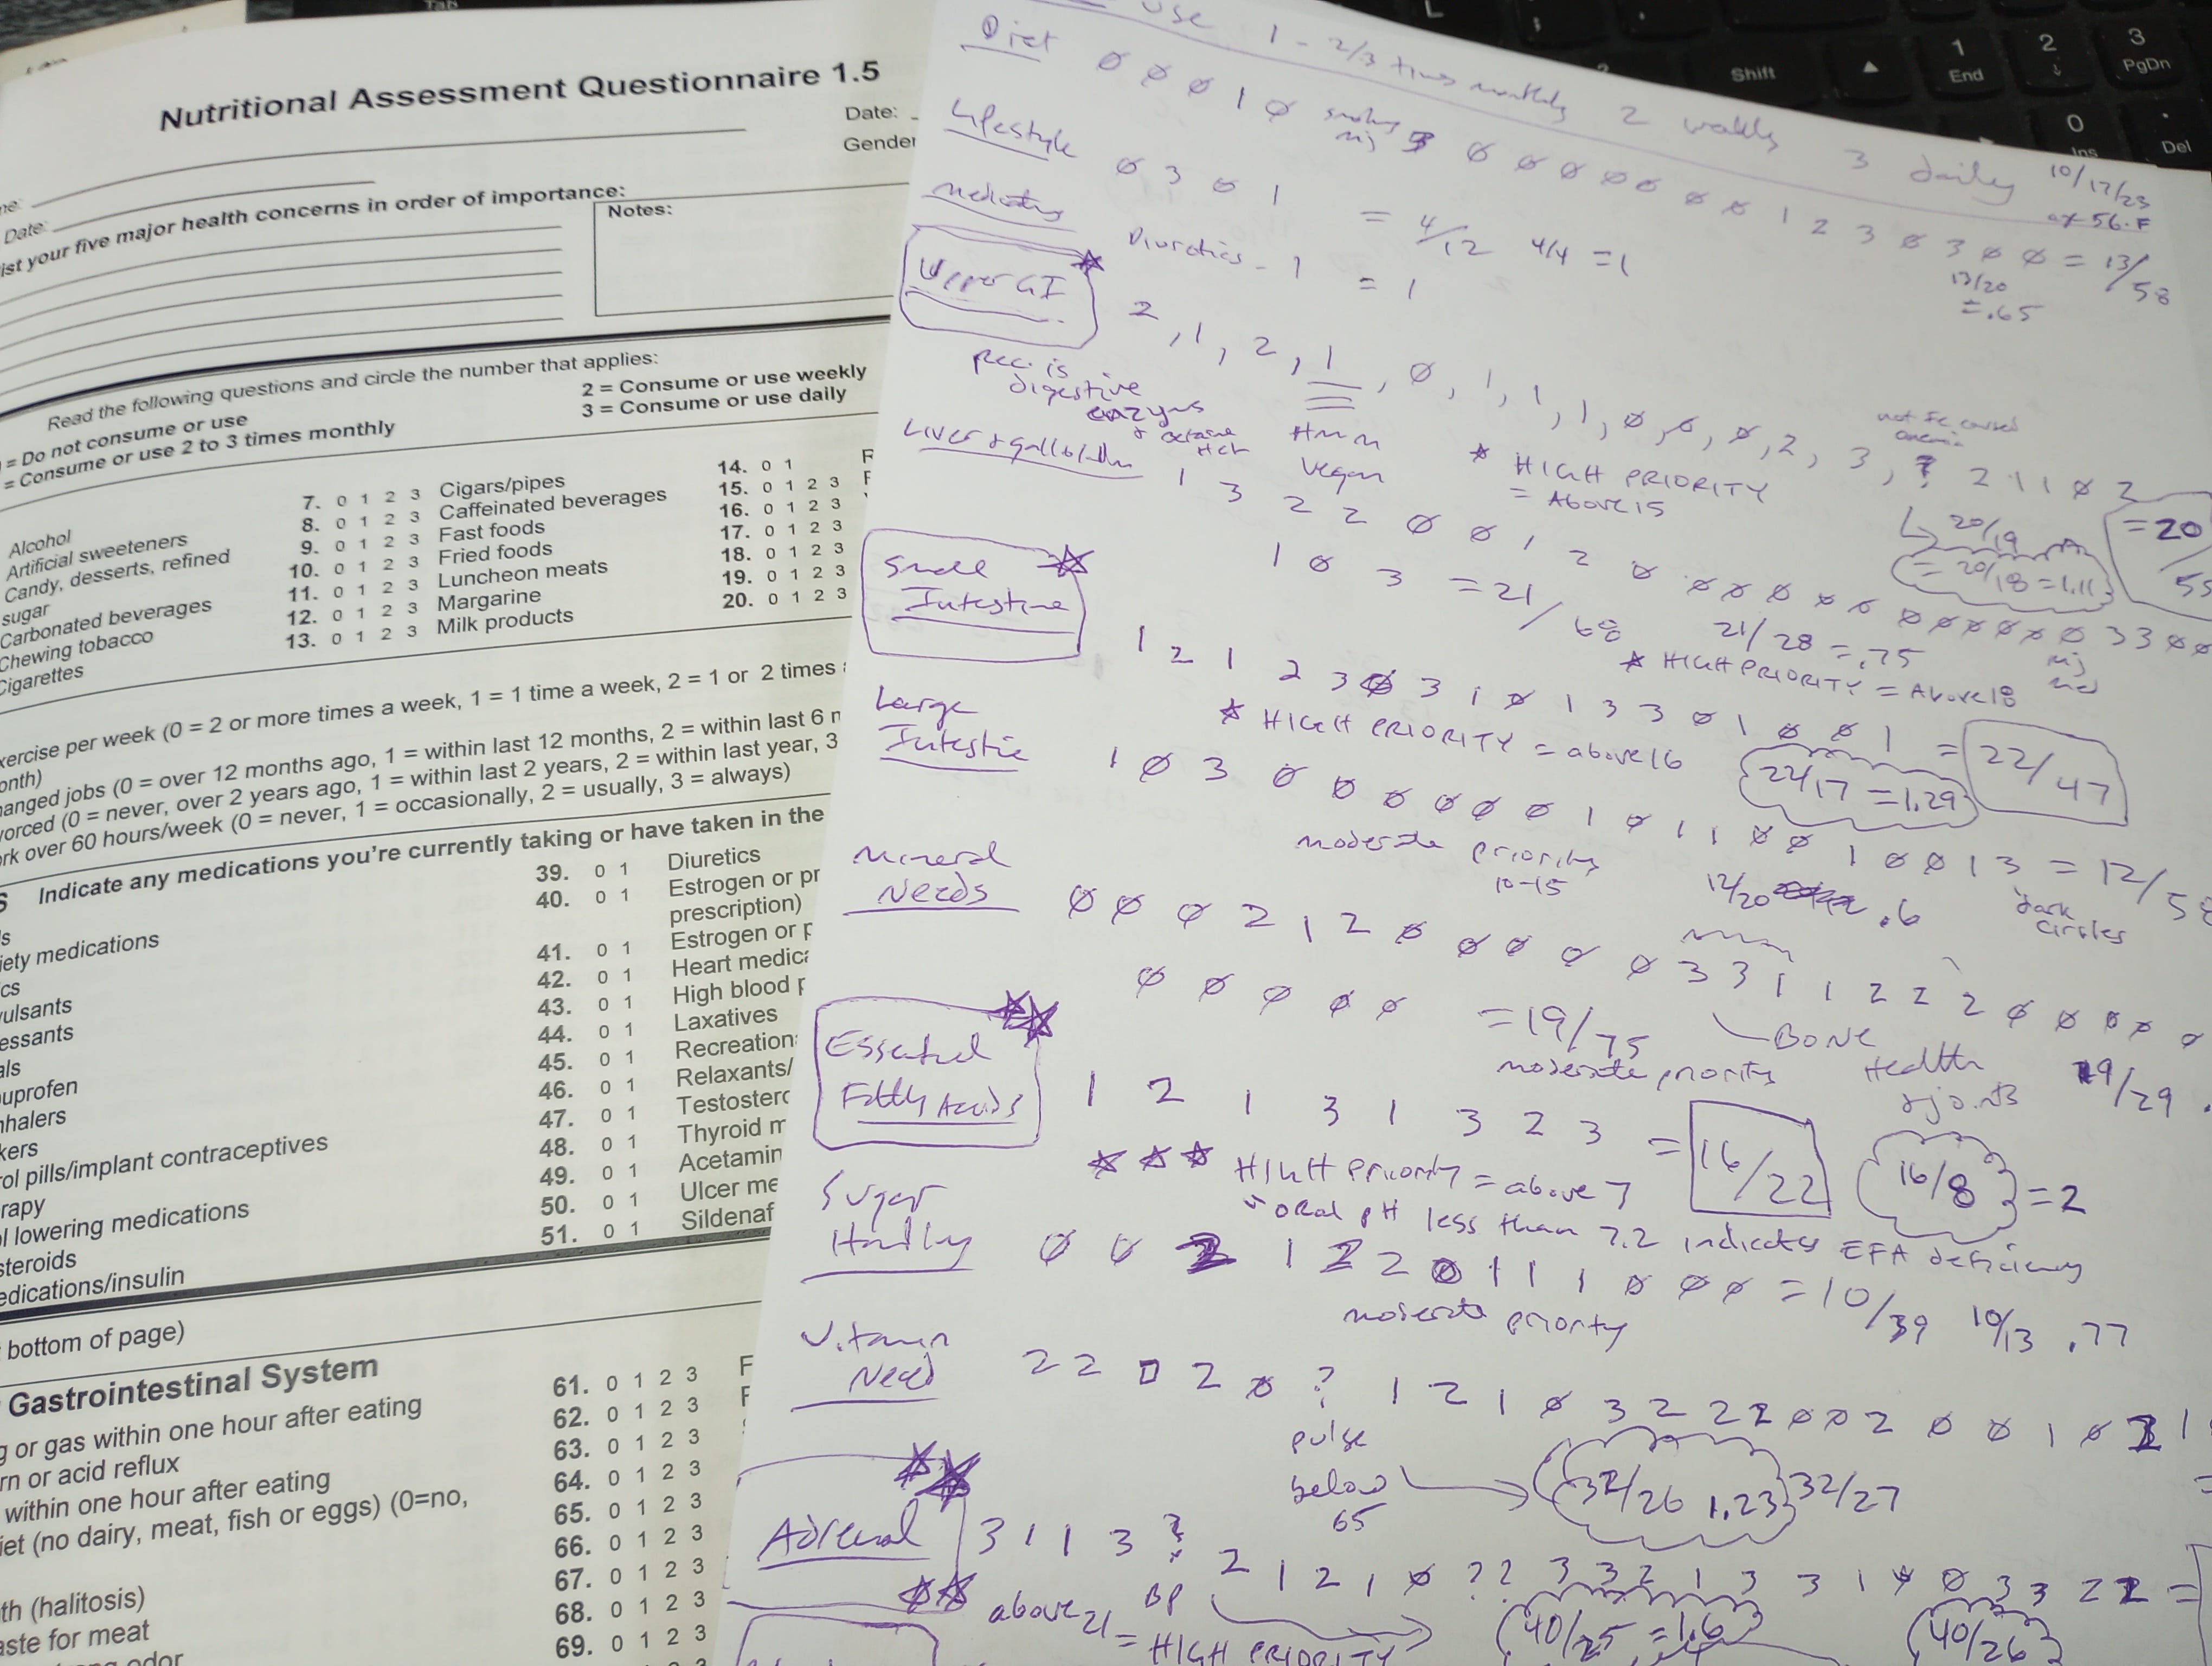 Nutritional Assessment Questionnaire 1.5
Date:
Gender
Date:
ist your five major health concerns in order of importance:
Notes:
Read the following questions and circle the number that applies:
= Do not consume or use
= Consume or use 2 to 3 times monthly
2 = Consume or use weekly
3 = Consume or use daily
Alcohol
Artificial sweeteners
Candy, desserts, refined
sugar
Carbonated beverages
Chewing tobacco
Cigarettes
7. 0 1 2 3 Cigars/pipes
8. 0 1 2 3 Caffeinated beverages
9. 0 1 2 3 Fast foods
10. 0 1 2 3 Fried foods
11. 0 1 2 3 Luncheon meats
12. 0 1 2 3 Margarine
13. 0 1 2 3 Milk products
14. 0 1
15. 0 1 2 3
16. 0 1 2 3
17. 0 1 2 3
18. 0 1 2 3
19. 0 1 2 3
20. 0 1 2 3
xercise per week (0 = 2 or more times a week, 1 = 1 time a week, 2 = 1 or 2 times
onth)
anged jobs (0 = over 12 months ago, 1 = within last 12 months, 2 = within last 6 m
vorced (0 = never, over 2 years ago, 1 = within last 2 years, 2 = within last year, 3
rk over 60 hours/week (0 = never, 1 = occasionally, 2 = usually, 3 = always)
S Indicate any medications you're currently taking or have taken in the
iety medications
cs
vulsants
essants
als
uprofen
nhalers
kers
rol pills/implant contraceptives
rapy
ol lowering medications
steroids
edications/insulin
39. 0 1 Diuretics
40. 0 1 Estrogen or pr
prescription)
41. 0 1 Estrogen or p
42. 0 1 Heart medica
43. 0 1 High blood p
44. 0 1 Laxatives
45. 0 1 Recreation
46. 0 1 Relaxants/
47. 0 1 Testosterc
48. 0 1 Thyroid m
49. 0 1 Acetamin
50. 0 1 Ulcer me
51. 0 1 Sildenaf
bottom of page)
Gastrointestinal System
g or gas within one hour after eating
rn or acid reflux
within one hour after eating
iet (no dairy, meat, fish or eggs) (0=no,
th (halitosis)
aste for meat
odor
61. 0 1 2 3
62. 0 1 2 3
63. 0 1 2 3
64. 0 1 2 3
65. 0 1 2 3
66. 0 1 2 3
67. 0 1 2 3
68. 0 1 2 3
69. 0 1 2 3
use 1 - 2/3 times monthly 2 weekly 3 daily
10/17/23
56.F
Diet 0 0 0 1 0 smoking mj 3 0 0 0 0 0 0 0 1 2 3 0 3 0 0 = 13/58
13/20
= .65
Lifestyle 0 3 0 1 = 4/12 4/4 = 1
Medications Diuretics - 1 = 1
Upper GI 2, 1, 2, 1, 0, 1, 1, 1, 0, 0, 0, 2, 3, ? 2 1 1 0 2 = 20/55
Rec. is
digestive
enzymes
HCL
Hmm
Vegan
* HIGH PRIORITY
= Above 15
20/19
= 20/18 = 1.11
Liver & gallbladder 1 3 2 2 0 0 1 2 0 0 0 0 0 0 0 0 0 0 0 3 3 0 0
1 0 3 = 21/68 21/28 = .75
mj
* HIGH PRIORITY = Above 18
Small
Intestine 1 2 1 2 3 0 3 1 0 1 3 3 0 1 0 0 1 = 22/47
* HIGH PRIORITY = above 16
22/17 = 1.29
Large
Intestine 1 0 3 0 0 0 0 0 0 1 0 1 1 0 0 1 0 0 1 3 = 12/58
moderate priority
10-15
12/20 .6
dark
circles
Mineral
Needs 0 0 0 2 1 2 0 0 0 0 0 3 3 1 1 2 2 2 0 0 0 0 0
0 0 0 0 0 = 19/75
moderate priority
Bone
Health
& joints
19/29 .
Essential
Fatty Acids 1 2 1 3 1 3 2 3 = 16/22
16/8 = 2
* * * HIGH Priority = above 7
oral pH less than 7.2 indicates EFA deficiency
Sugar
Handling 0 0 2 1 2 2 0 1 1 1 0 0 0 = 10/39 10/13 .77
moderate priority
Vitamin
Need 2 2 0 2 0 ? 1 2 1 0 3 2 2 2 2 0 0 2 0 0 1 0 2 1
pulse
below
65
32/26 1.23 32/27
Adrenal 3 1 1 3 ? 2 1 2 1 0 ? ? 3 3 2 1 3 3 1 0 0 3 3 2 2 =
above 21 = HIGH PRIORITY
BP
40/25 = 1.6
40/26
Shift
1
End
2
3
PgDn
0
Ins
.
Del